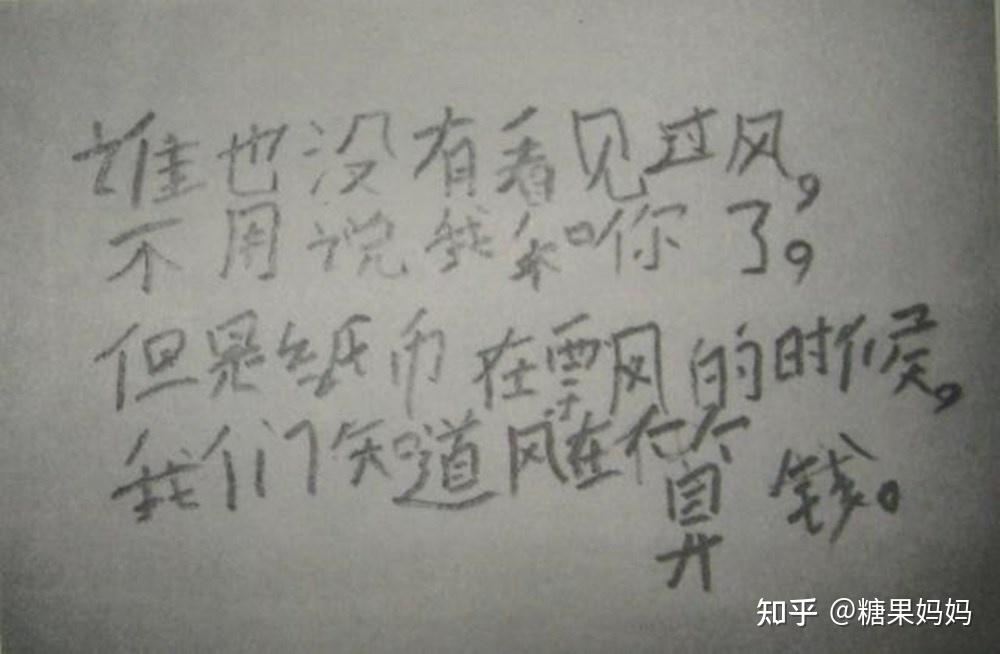 谁也没有看见过风,
不用说我和你了,
但是纸币在飘的时候,
我们知道风在算钱。
知乎 @糖果妈妈